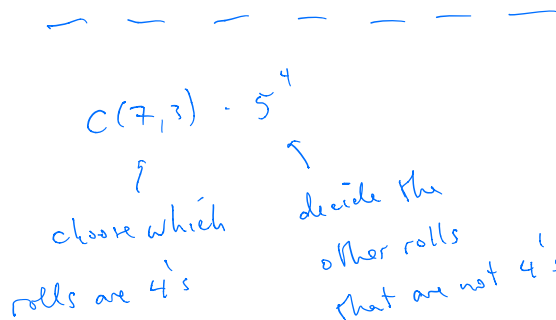 C(7,3) · 5^4
choose which
rolls are 4's
decide the
other rolls
that are not 4's